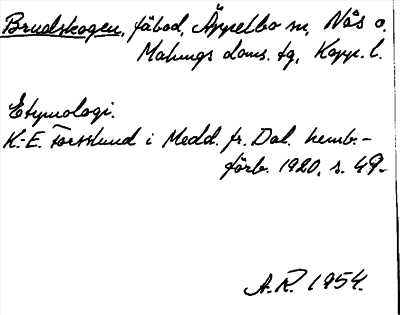 Brudskogen, fäbod, Äppelbo sn, Nås o.
Malungs doms. tg, Kopp. l.
Etymologi.
K.-E. Forsslund i Medd. fr. Dal. hemb.-
förb. 1920, s. 49-
A.R. 1954.